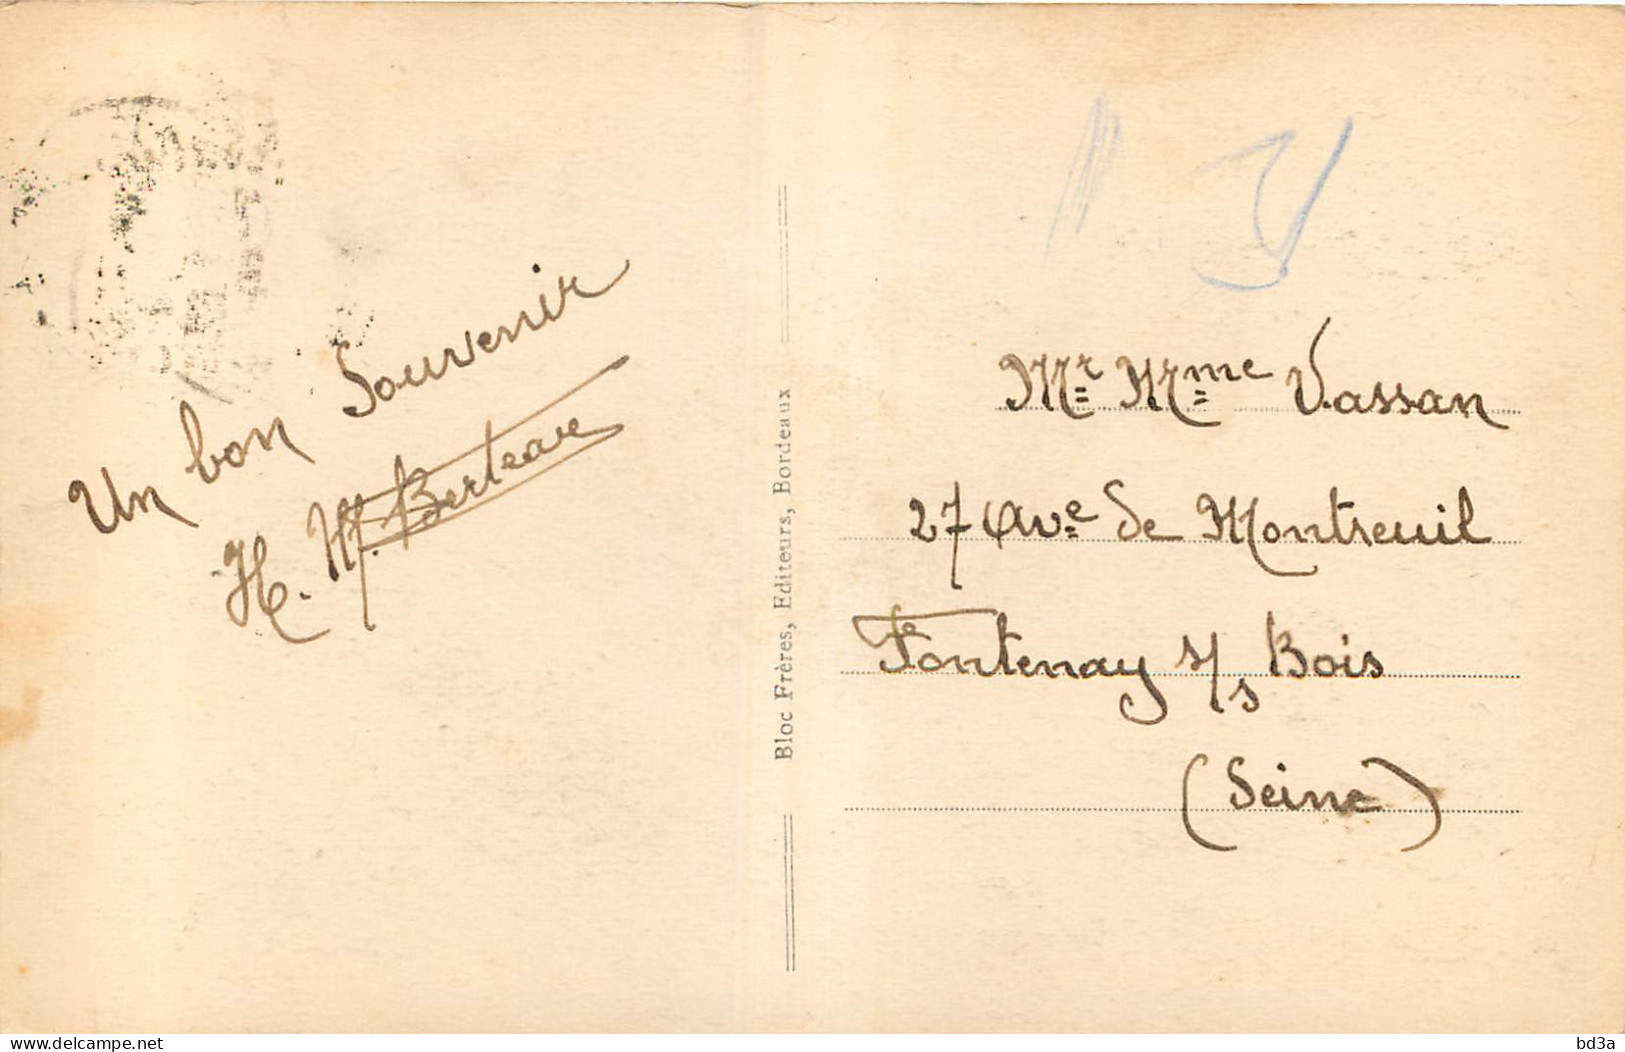 Un bon Souvenir
H. M. Berteave
Bloc Frères, Editeurs, Bordeaux
Mr Mme Vassan
27 Ave de Montreuil
Fontenay s/s Bois
(Seine)
delcampe.net
bd3a